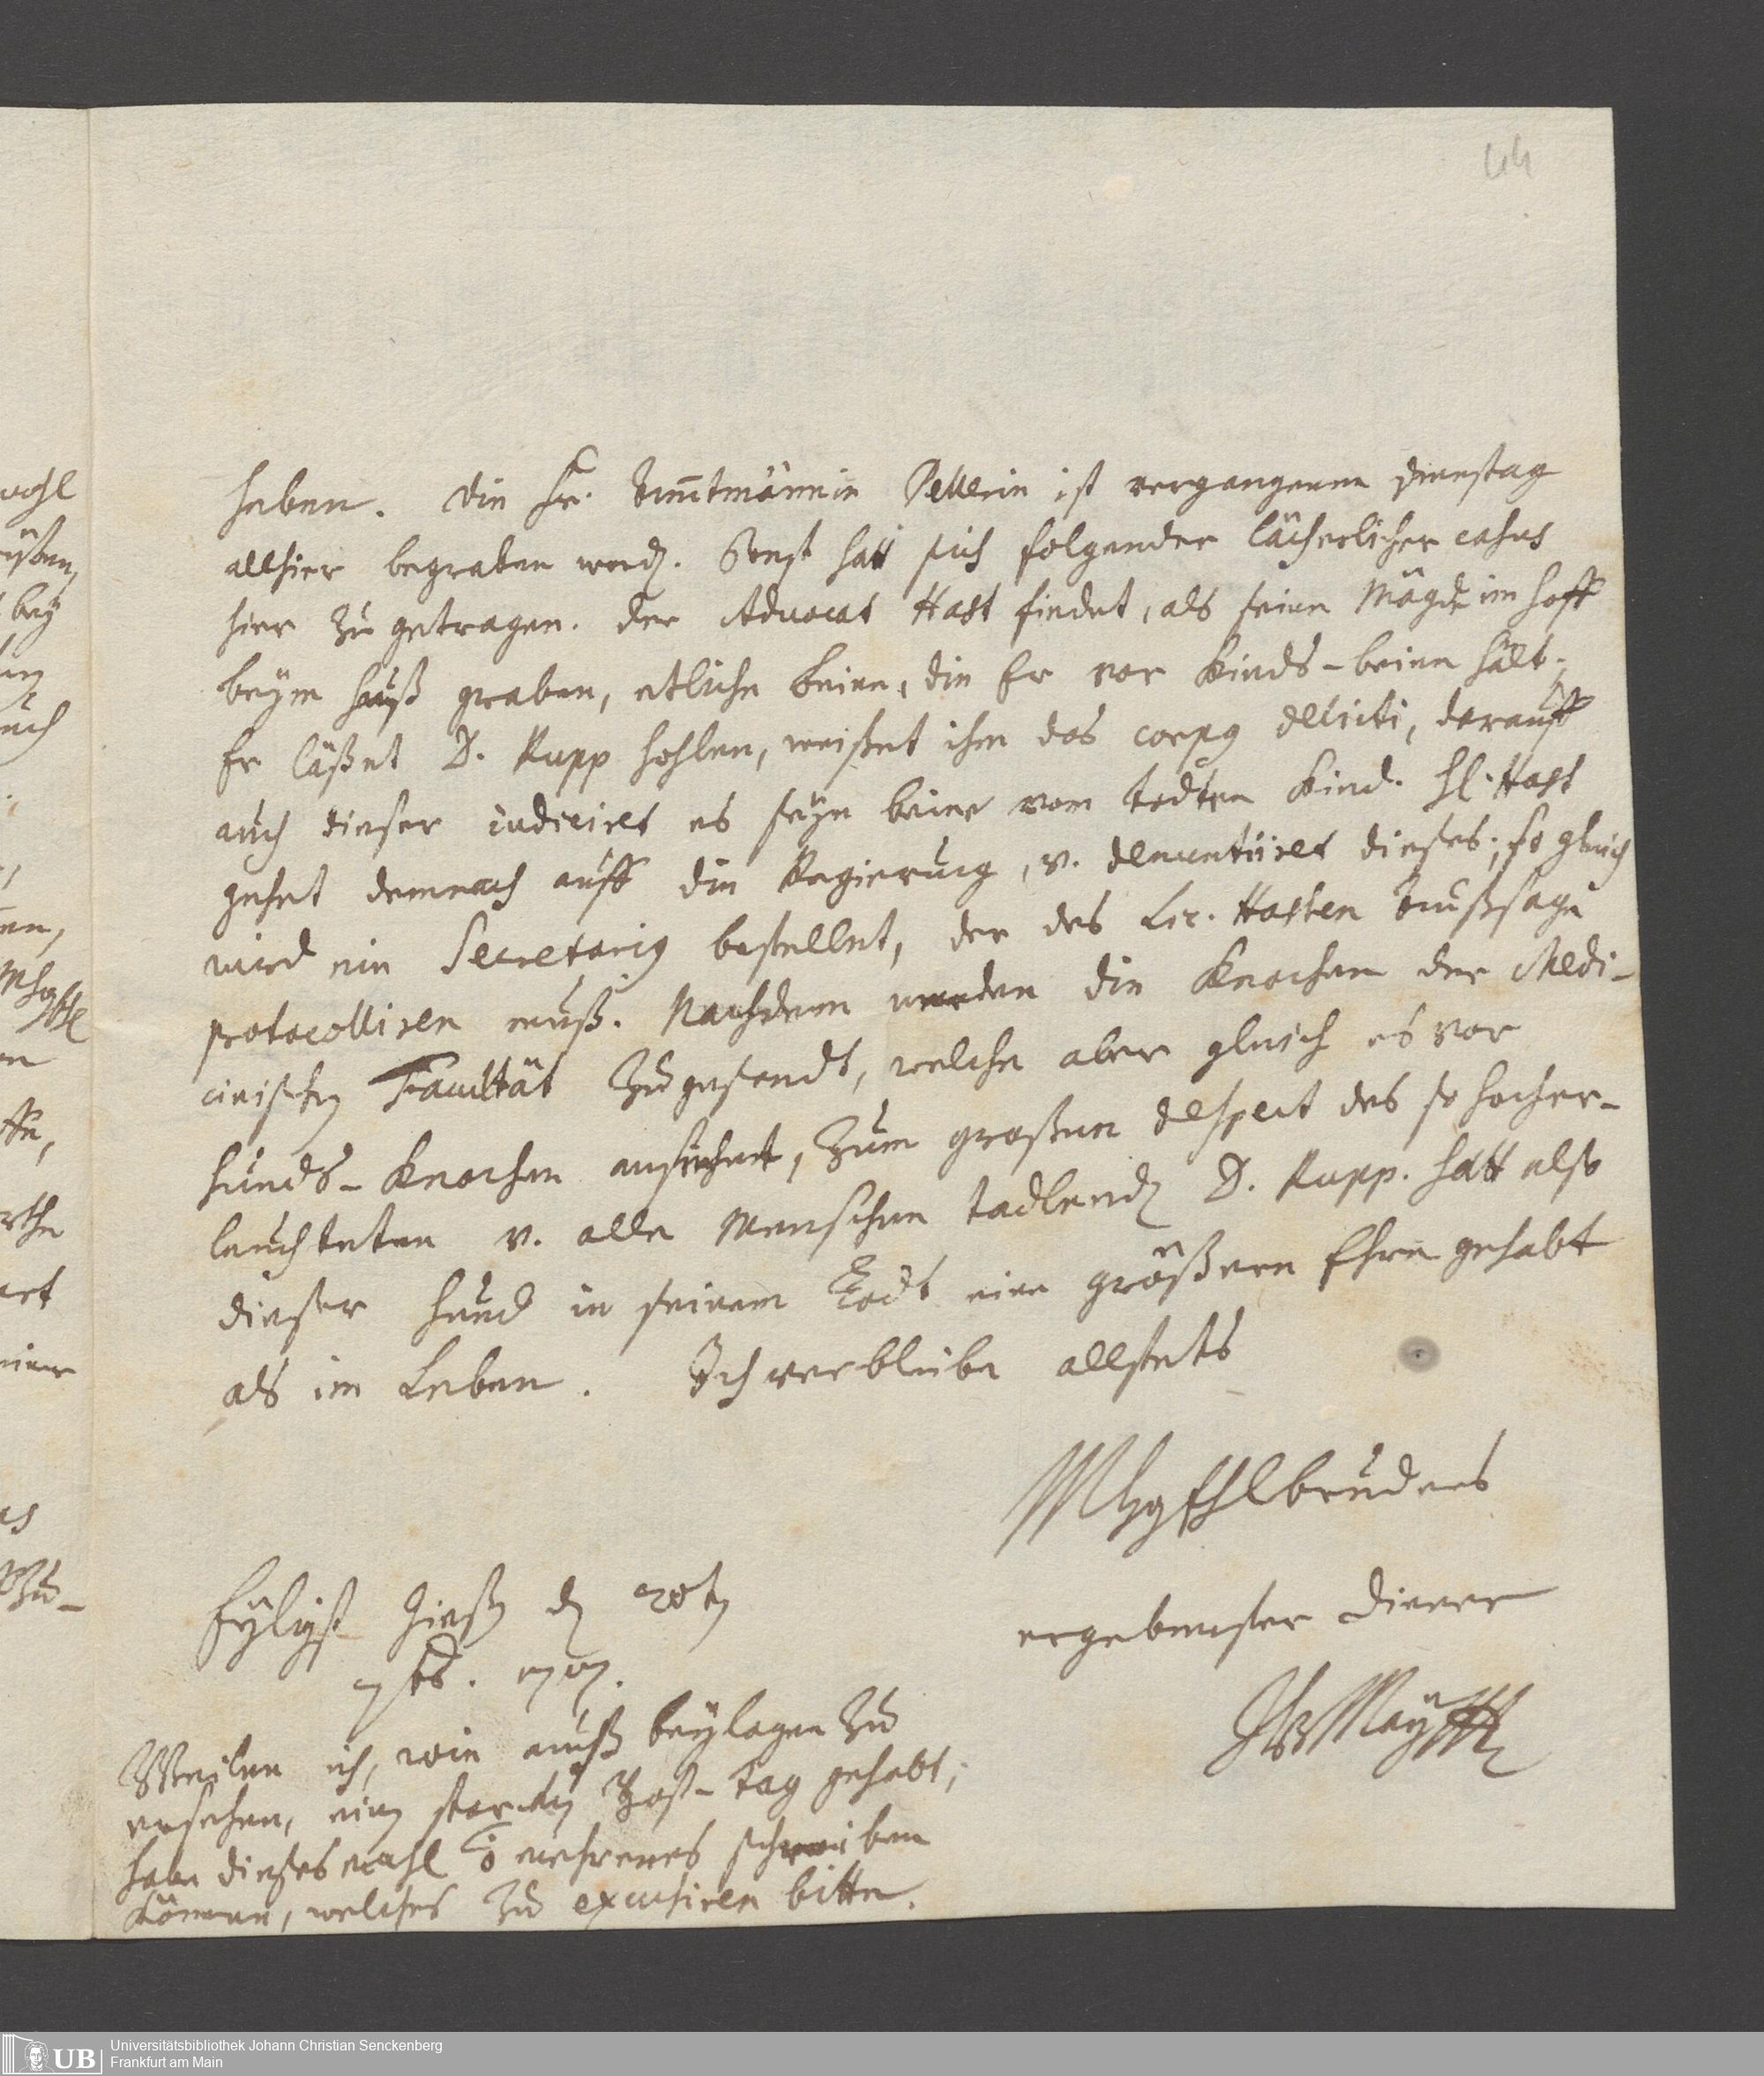 44
haben. Die Fr. Ammtmännin Pellerin ist vergangenen Dienstag
allhier begraben word. Sonst hatt sich folgender lächerlicher casus
hier zu getragen. Der Advocat Hast findet, als seine Mägde im Hoff
beym Hauß graben, etliche Beine, die Er vor Kinds-beine hält;
Er läßet D. Rupp hohlen, weißet ihm das corpus delicti, darauff
auch dieser iudiciret es seyn beine vom todten Kind. H. Hast
gehet demnach auff die Regierung, v. denuntiiret dieses; so gleich
wird ein Secretarius bestellet, der des Lic. Hasten Außsage
protocolliren muß. Nachdem werden die Knochen der Medi-
cinischen Facultät zugesandt, welche aber gleich es vor
Hunds-Knochen ansiehet, zum großen despect des so hocher-
leuchteten v. alle Menschen tadlenden D. Rupp. Hatt also
dieser Hund in seinem Todt eine größere Ehre gehabt
als im Leben. Ich verbleibe allstets
MhgEhlbruders
Eyligst Gießen d 20ten
ergebenster Diener
Weilen ich, wie auß beylagen zu
ersehen, einen starcken Post-Tag gehabt;
habe dießes mahl mehreres schreiben
können, welches zu excusiren bitte.
JHMayffL
wohl
bey
auch
Universitätsbibliothek Johann Christian Senckenberg
Frankfurt am Main
UB